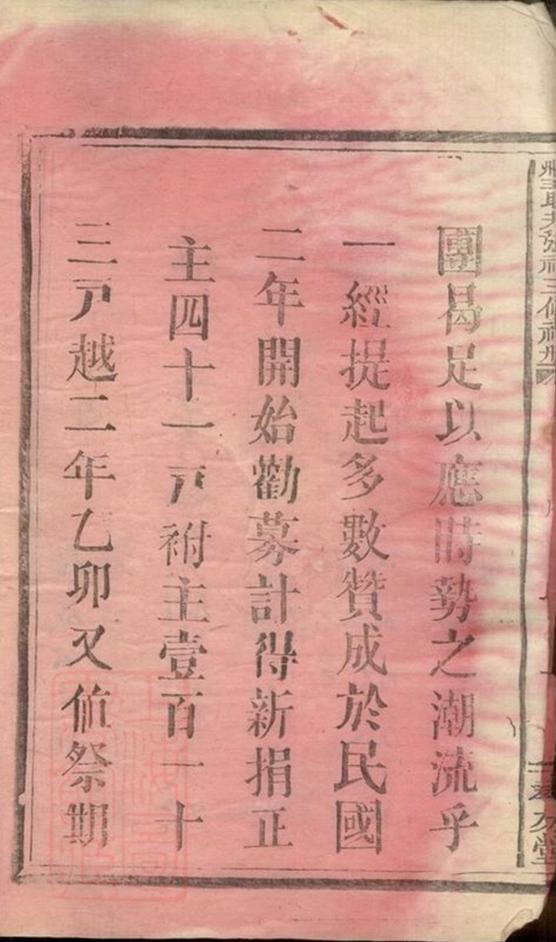 團曷足以應時勢之潮流乎
一經提起多數贊成於民國
二年開始勸募計得新捐正
主四十一戸祔主壹百一十
三戸越二年乙卯又值祭期